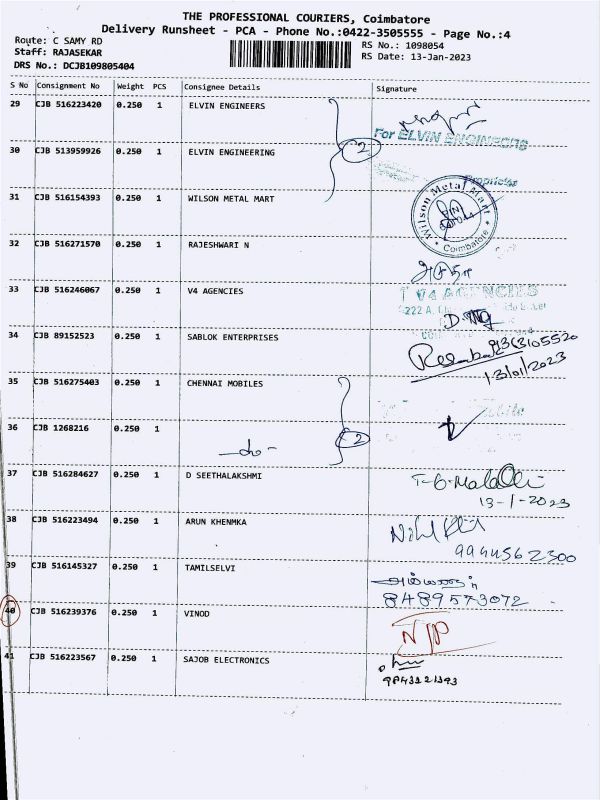 THE PROFESSIONAL COURIERS, Coimbatore
Delivery Runsheet - PCA - Phone No.:0422-3505555 - Page No.:4
Route: C SAMY RD
Staff: RAJASEKAR
DRS No.: DCJB109805404
RS No.: 1098054
RS Date: 13-Jan-2023
S No Consignment No Weight PCS Consignee Details Signature
29 CJB 516223420 0.250 1 ELVIN ENGINEERS
For ELVIN ENGINEERS
2
30 CJB 513959926 0.250 1 ELVIN ENGINEERING
Proprietor
31 CJB 516154393 0.250 1 WILSON METAL MART
Wilson Metal Mart
Coimbatore
32 CJB 516271570 0.250 1 RAJESHWARI N
33 CJB 516246067 0.250 1 V4 AGENCIES
V4 AGENCIES
34 CJB 89152523 0.250 1 SABLOK ENTERPRISES
13/01/2023
35 CJB 516275403 0.250 1 CHENNAI MOBILES
36 CJB 1268216 0.250 1
-do- 2
37 CJB 516284627 0.250 1 D SEETHALAKSHMI
13-1-2023
38 CJB 516223494 0.250 1 ARUN KHENMKA
9944562300
39 CJB 516145327 0.250 1 TAMILSELVI
8489573072
40 CJB 516239376 0.250 1 VINOD
41 CJB 516223567 0.250 1 SAJOB ELECTRONICS